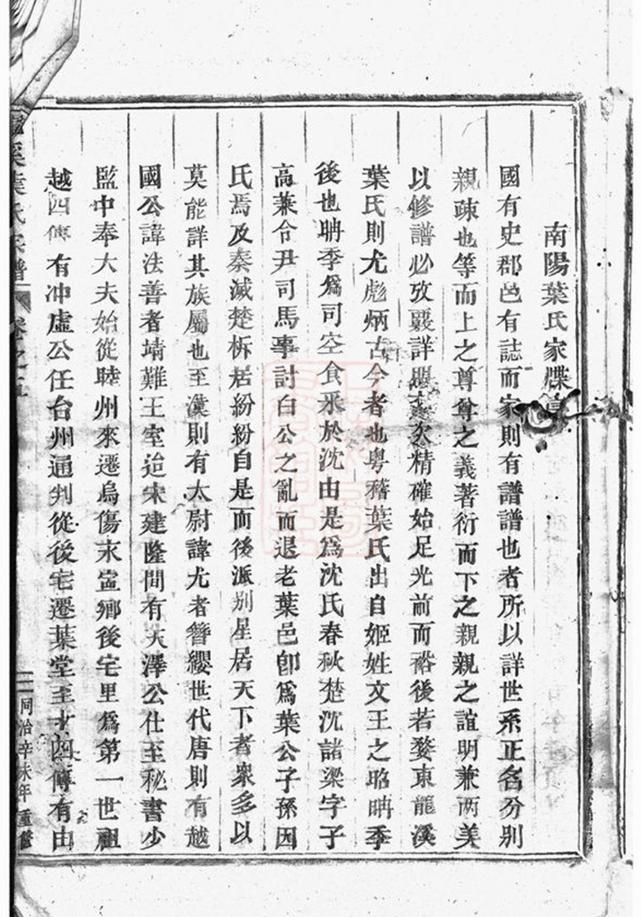 南陽葉氏家牒
國有史郡邑有誌而家則有譜譜也者所以詳世系正名分別
親疎也等而上之尊尊之義著衍而下之親親之誼明兼兩美
以修譜必攷覈詳次精確始足光前而裕後若婺東龍溪
葉氏則尤彪炳古今者也粵稽葉氏出自姬姓文王之昭聃季
後也聃季爲司空食采於沈由是爲沈氏春秋楚沈諸梁字子
高兼令尹司馬事討白公之亂而退老葉邑卽爲葉公子孫因
氏焉及秦滅楚柝居紛紛自是而後派別星居天下者衆多以
莫能詳其族屬也至漢則有太尉諱尤者簪纓世代唐則有越
國公諱法善者靖難王室迨宋建隆間有天澤公仕至秘書少
監中奉大夫始從睦州來遷烏傷永寧鄉後宅里爲第一世祖
越四傳有冲虛公任台州通判從後宅遷葉堂至十四傳有由
溪葉氏家譜 卷之五
同治辛未年重修